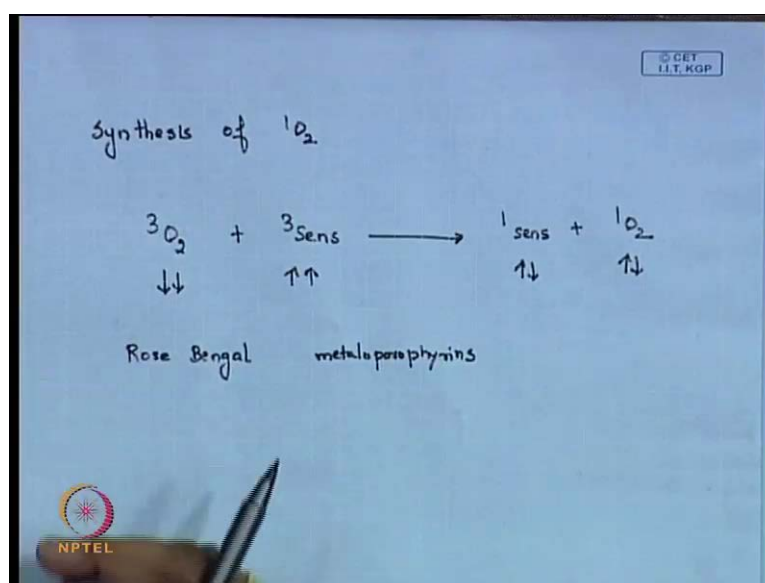 © CET
I.I.T. KGP
Synthesis of ¹O₂
³O₂ + ³Sens ⟶ ¹sens + ¹O₂
↓↓ ↑↑ ↑↓ ↑↓
Rose Bengal metaloporophyrins
NPTEL